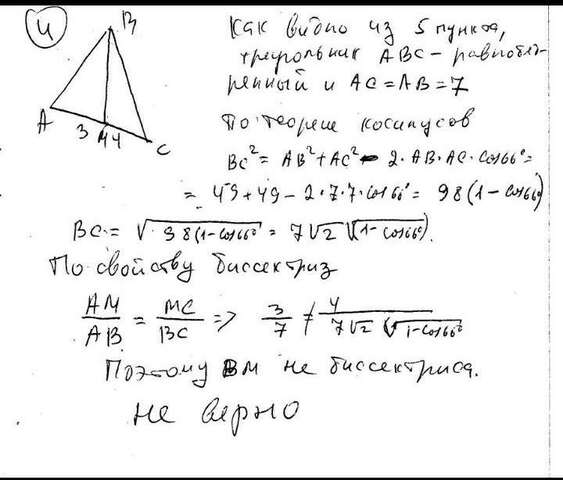 4
B
A
3
M
4
C
Как видно из 5 пункта,
треугольник ABC - равнобед-
ренный и AC = AB = 7
По теореме косинусов
BC² = AB² + AC² - 2·AB·AC·cos66° =
= 49 + 49 - 2·7·7·cos66° = 98(1 - cos66°)
BC = √98(1-cos66°) = 7√2 √(1-cos66°).
По свойству биссектриз
AM/AB = MC/BC => 3/7 ≠ 4/7√2 √1-cos66°
Поэтому BM не биссектриса.
не верно